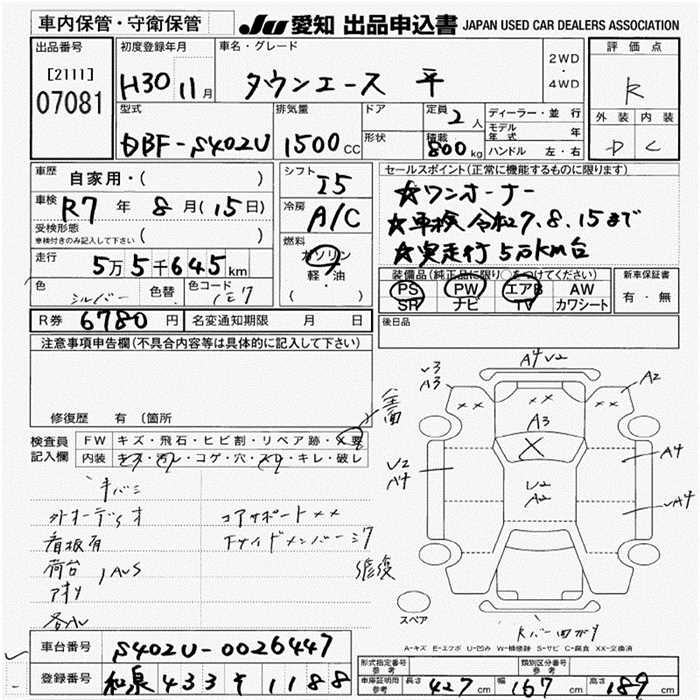 車内保管・守衛保管
JU 愛知 出品申込書 JAPAN USED CAR DEALERS ASSOCIATION
出品番号
[2111]
07081
初度登録年月
H30 11月
車名・グレード
タウンエース 平
2WD
・
4WD
評価点
R
外装 内装
D C
型式
DBF-S402U
排気量
1500 CC
ドア
形状
定員 2 人
積載 800 kg
ディーラー・並行
モデル年式 年
ハンドル 左・右
車歴
自家用・( )
車検 R7 年 8 月(15日)
受検形態
車検付きのみ記入して下さい ( )
走行 5万5千645km
色 シルバー 色替 色コード
シフト
I5
冷房
A/C
燃料
ガソリン
軽・油
( )
セールスポイント(正常に機能するものに限ります)
☆ワンオーナー
☆車検 令和7.8.15まで
☆実走行 5万km台
装備品(純正品に限り○をつけてください)
PS PW エアB AW
SR ナビ TV カワシート
新車保証書
有・無
R券 6780 円 名変通知期限 月 日
後日品
注意事項申告欄(不具合内容等は具体的に記入して下さい)
修復歴 有 (箇所
検査員
記入欄
FW キズ・飛石・ヒビ割・リペア跡・×要
内装 キズ・汚レ・コゲ・穴・スレ・キレ・破レ
キバミ
外オーディオ
看板有
荷台
アオリ
コアサポート××
修復
A4 U2
U3
A3
A2
×× ×× ××
A3
X
U2
A4
U2
A2
A4
UA4
スペア
A-キズ E-エクボ U-凹み W-補修跡 S-サビ C-腐食 XX-交換済
車台番号 S402U-0026447
登録番号 和泉 433 す 1188
形式指定番号
参考
類別区分番号
参考
車庫証明用
参考
長さ 427 cm 幅 167 cm 高さ 189 cm